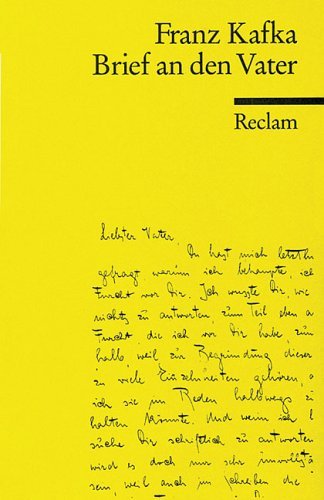 Franz Kafka
Brief an den Vater
Reclam
Liebster Vater,
Du hast mich letzthin
gefragt warum ich behaupte, ich
Furcht vor Dir. Ich wusste Dir, wie
nichts zu antworten, zum Teil eben a
Furcht, die ich vor Dir habe, zum
halb weil zur Begründung dieser
zu viele Einzelheiten gehören, a
ich sie im Reden halbwegs z
halten könnte. Und wenn ich h
suche Dir schriftlich zu antworten
wird es doch nur sehr unvollstä
sein, weil auch im Schreiben die